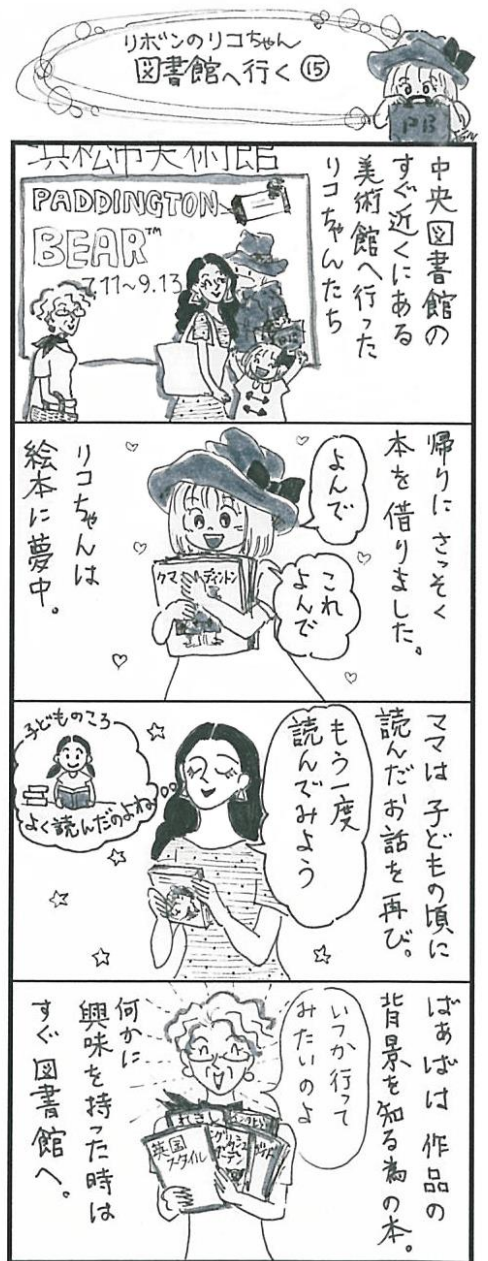 リボンのリコちゃん
図書館へ行く⑮
PB
浜松市美術館
PADDINGTON
BEAR™
7.11～9.13
中央図書館の
すぐ近くにある
美術館へ行った
リコちゃんたち
帰りに さっそく
本を借りました。
よんで
これ
よんで
クマ
ディントン
リコちゃんは
絵本に夢中。
ママは 子どもの頃に
読んだお話を再び。
もう一度
読んでみよう
子どものころ
よく読んだのよね
ばぁばは 作品の
背景を知る為の本。
いつか行って
みたいのよ
れきし
英国
スタイル
何かに
興味を持った時は
すぐ 図書館へ。